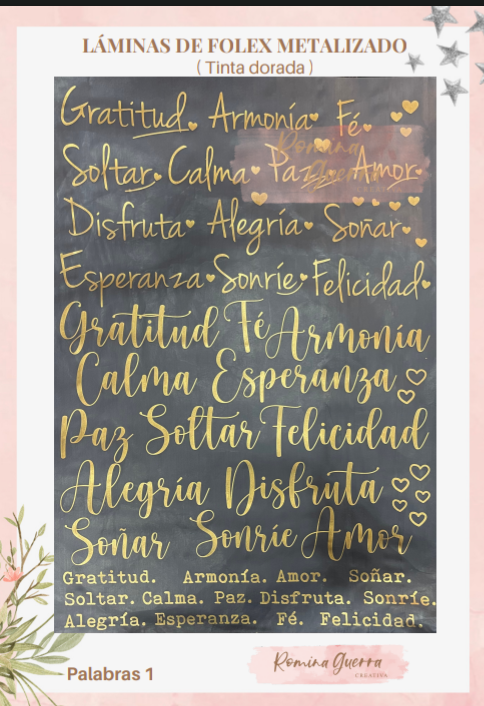 LÁMINAS DE FOLEX METALIZADO
( Tinta dorada )
Gratitud Armonía Fé
Romina
Guerra
Soltar Calma Paz Amor
Disfruta Alegría Soñar
Esperanza Sonríe Felicidad
Gratitud Fé Armonía
Calma Esperanza
Paz Soltar Felicidad
Alegría Disfruta
Soñar Sonríe Amor
Gratitud. Armonía. Amor. Soñar.
Soltar. Calma. Paz. Disfruta. Sonríe.
Alegría. Esperanza. Fé. Felicidad.
Palabras 1
Romina Guerra
CREATIVA